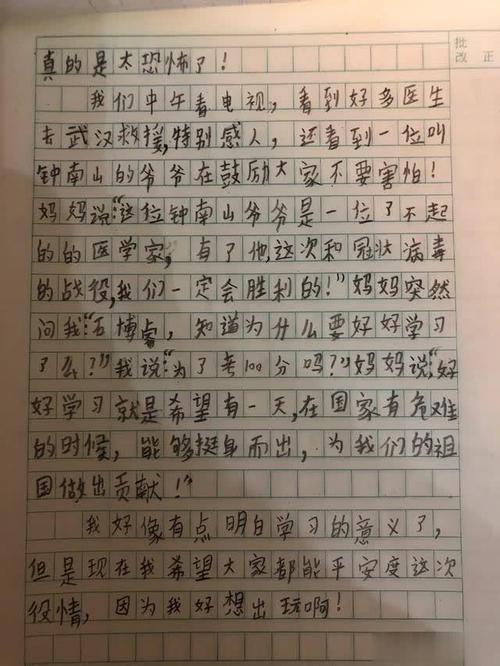 批
改 正
真的是太恐怖了！
我们中午看电视，看到好多医生
去武汉救援，特别感人，还看到一位叫
钟南山的爷爷在鼓励大家不要害怕！
妈妈说：“这位钟南山爷爷是一位了不起
的的医学家，有了他，这次和冠状病毒
的战役，我们一定会胜利的！”妈妈突然
问我：“王博睿，知道为什么要好好学习
了么？”我说：“为了考100分吗？”妈妈说：“好
好学习就是希望有一天，在国家有危难
的时候，能够挺身而出，为我们的祖
国做出贡献！”
我好像有点明白学习的意义了，
但是现在我希望大家都能平安度这次
役情，因为我好想出玩啊！